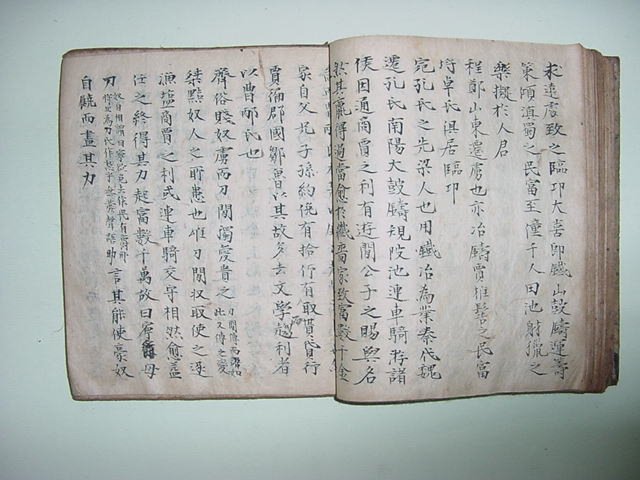 求遠處致之臨邛大喜即鐵山鼓鑄運籌
策傾滇蜀之民富至僮千人田池射獵之
樂擬於人君
程鄭山東遷虜也亦冶鑄賈椎髻之民富
埒卓氏俱居臨邛
宛孔氏之先梁人也用鐵冶為業秦伐魏
遷孔氏南陽大鼓鑄規陂池連車騎游諸
侯因通商賈之利有游閑公子之賜與名
然其贏得過當愈於纖嗇家致富數千金
家自父兄子孫約俛有拾仰有取貰貸行
賈徧郡國鄒魯以其故多去文學趨利者
以曹邴氏也
齊俗賤奴虜而刀閒獨愛貴之
桀黠奴人之所患也唯刀閒收取使之逐
漁鹽商賈之利或連車騎交守相然愈益
任之終得其力起富數千萬故曰寧爵毋
刀 言其能使豪奴
自饒而盡其力